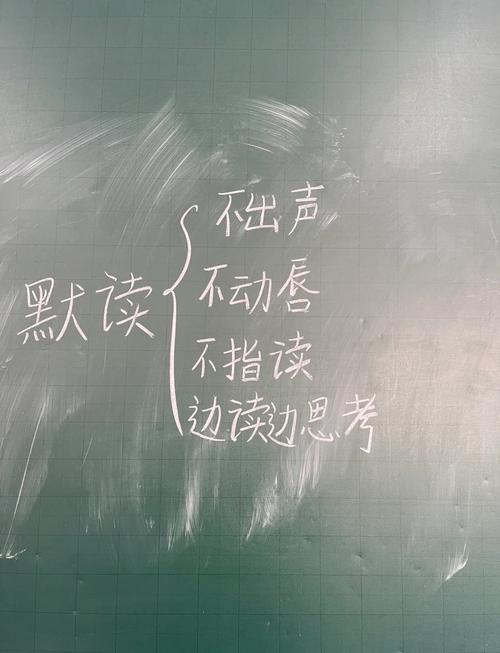 默读
不出声
不动唇
不指读
边读边思考